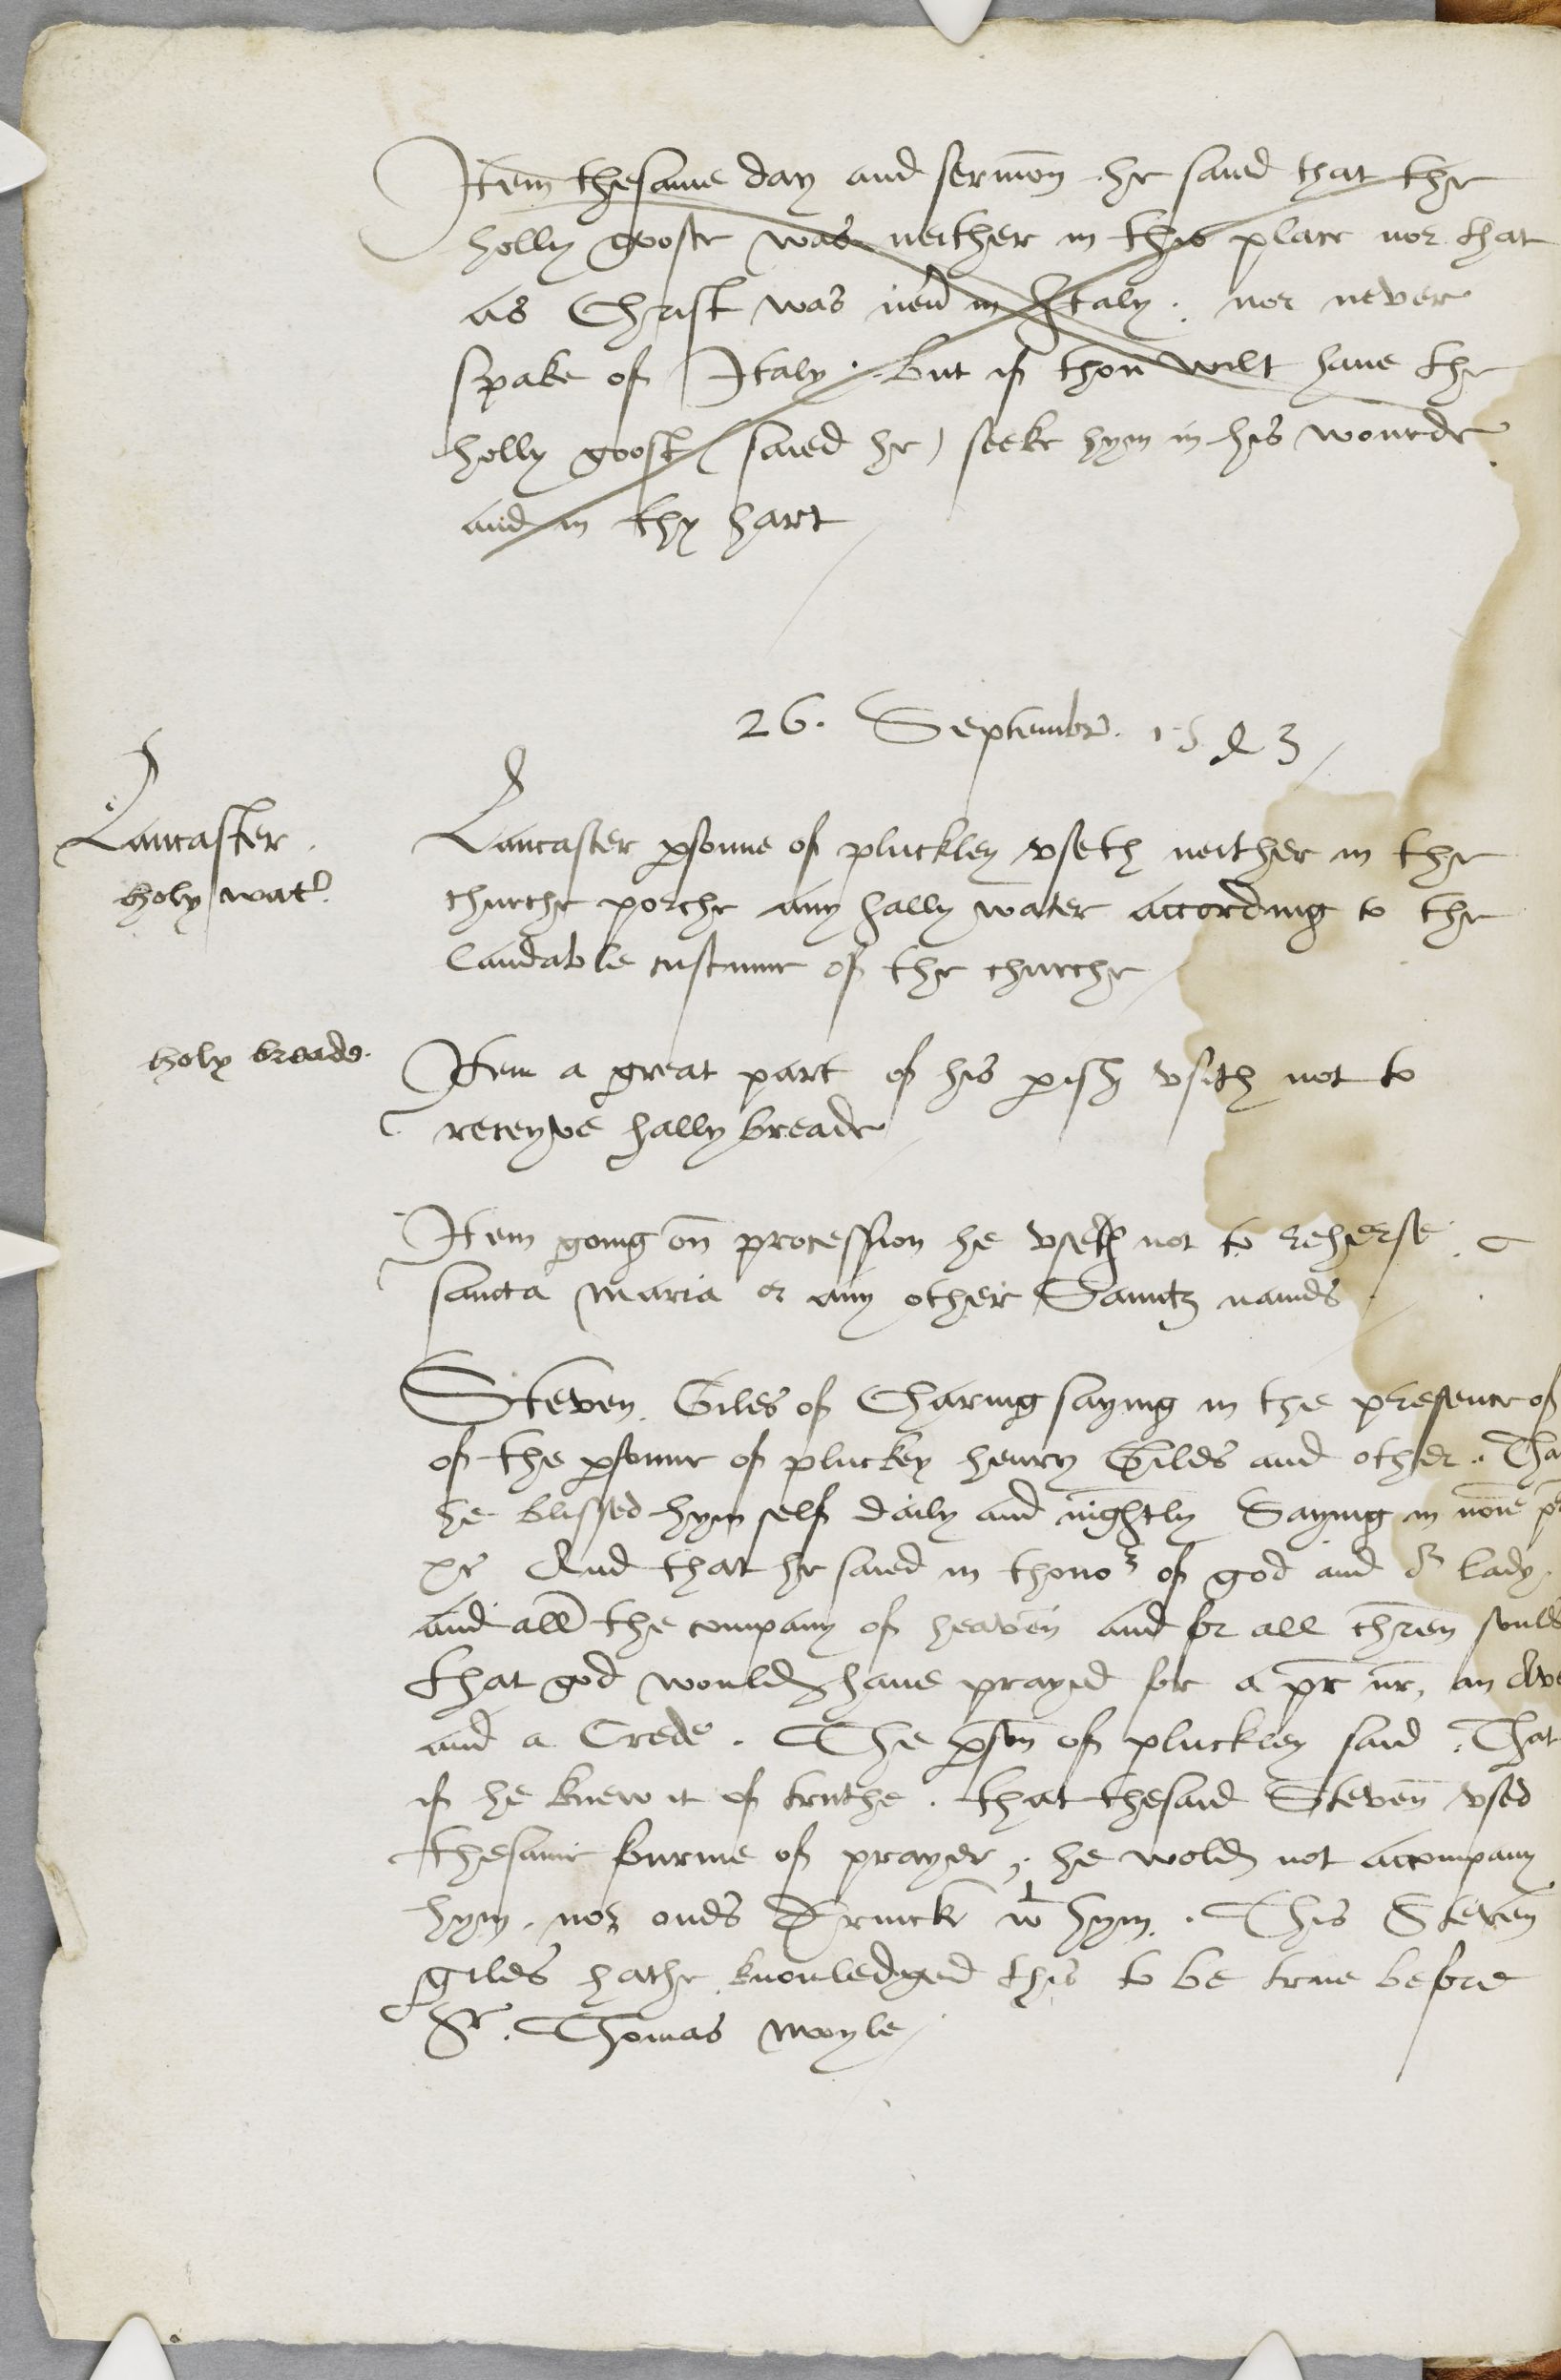 Item thesame day and sermon he saied that the
holly gooste was neither in this place nor that
as Christ was neu in Italy. nor never
spake of Italy. But if thou wilt haue the
holly goost (saied he) seeke hym in his wourde
and in thy hart
26. Septembr. 1543
Lancaster.
Lancaster psonne of pluckley vseth neither in the
holy wat
churche porche any hally water according to the
laudable custume of the churche
holy breade.
Item a great part of his pish vsith not to
receyve hally breade
Item going on procession he vseth not to reherse
sancta Maria or any other Saintz names
Steven Giles of Charing saying in the presence of
of the psonne of pluckey henry Giles and other. Tha
he blissed hym self daily and nightly Saying in noie p
And that he saied in thono of god and or lady.
and all the company of heaven and for all chren soules
that god would haue prayed for a pr nr, an Ave
and a Crede. The pson of pluckley said. That
if he knew it of truthe. that thesaid Steven vsed
thesame fourme of prayer, he wold not accompany
hym. nor ones Drincke wt hym. This Steven
giles hathe knowledged this to be true before
Sr. Thomas Moyle